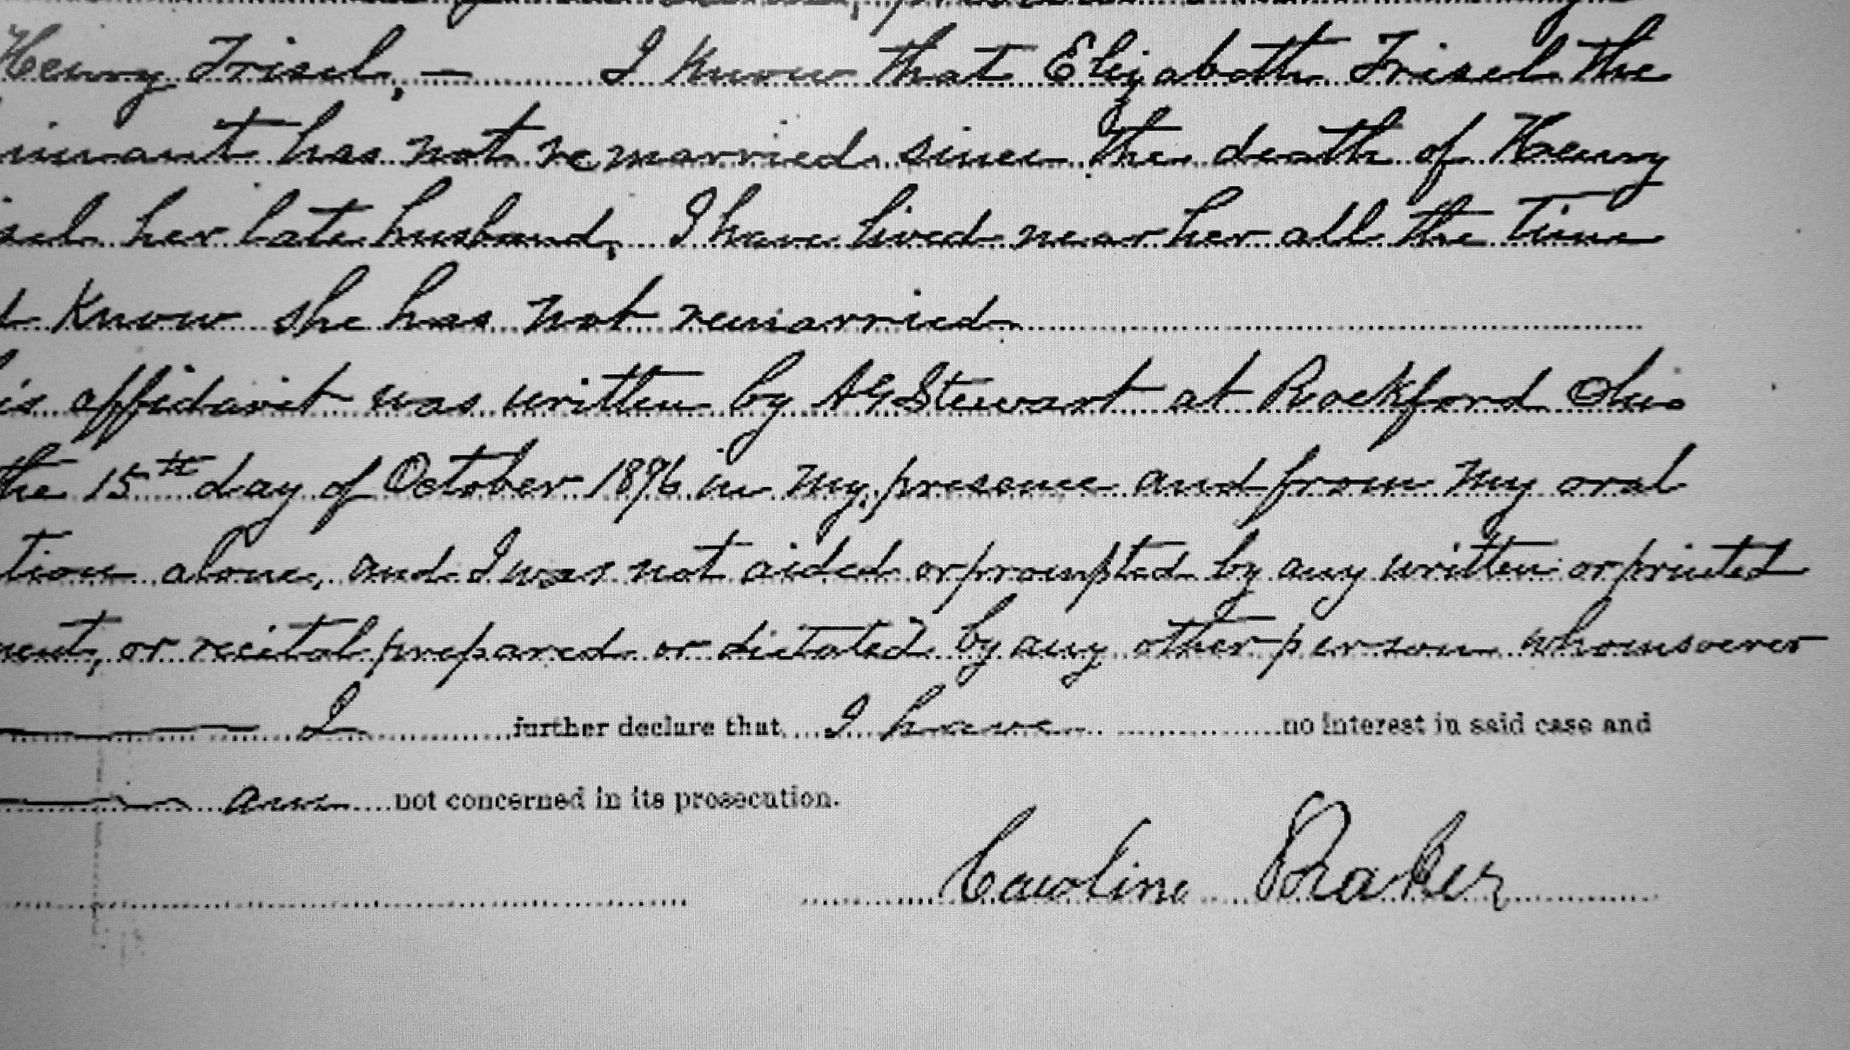 Henry Frisel, — I know that Elizabeth Frisel the
imant has not remarried since the death of Henry
sel her late husband, I have lived near her all the time
d know she has not remarried
is affidavit was written by AG Stewart at Rockford Ohio
the 15th day of October 1896 in my presence and from my oral
tion alone, and I was not aided or prompted by any written or printed
ment, or recital prepared or dictated by any other person whomsoever
I further declare that I have no interest in said case and
am not concerned in its prosecution.
Caroline